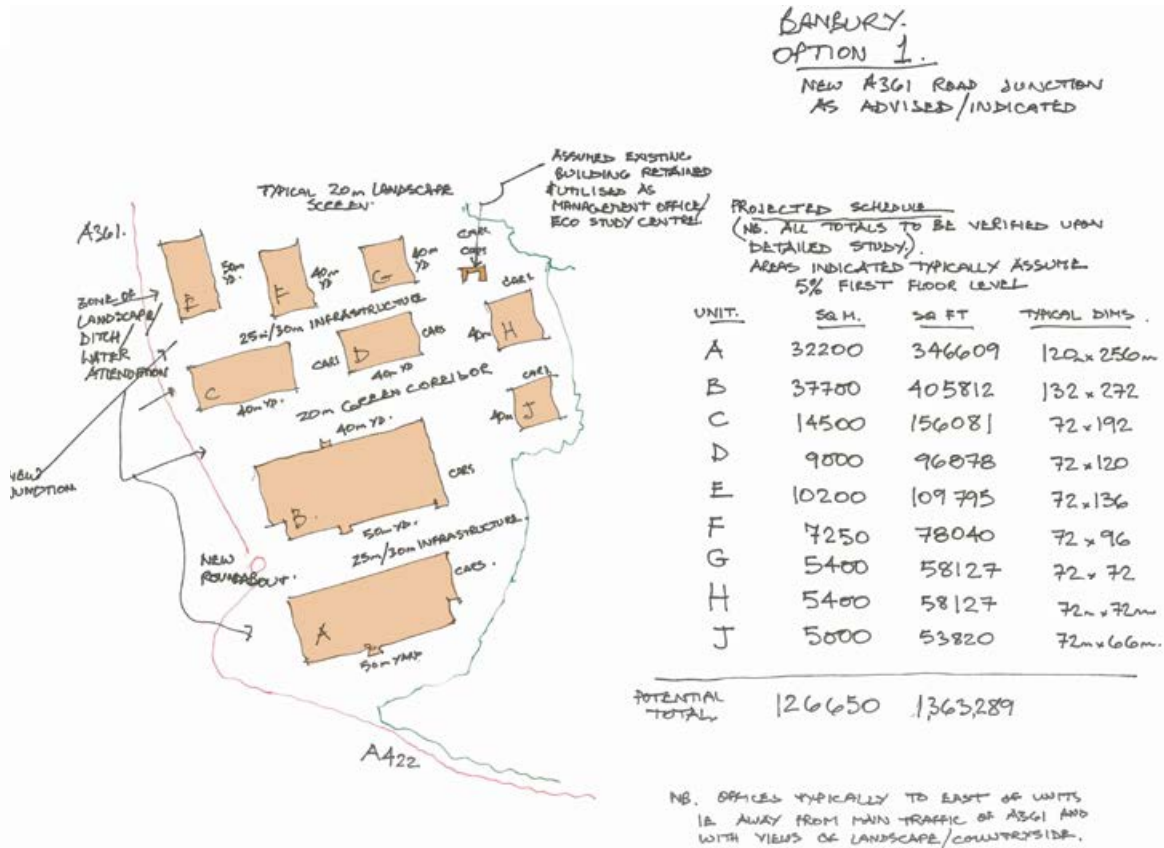 BANBURY.
OPTION 1.
NEW A361 ROAD JUNCTION
AS ADVISED/INDICATED
ASSUMED EXISTING
BUILDING RETAINED
& UTILISED AS
MANAGEMENT OFFICE/
ECO STUDY CENTRE.
TYPICAL 20m LANDSCAPE
SCREEN.
A361.
ZONE OF
LANDSCAPE/
DITCH/
WATER
ATTENUATION
E
50m
YD.
F
40m
YD
G
40m
YD
CARS
25m/30m INFRASTRUCTURE
CARS
H
40m
C
40m YD.
CARS
D
CARS
40m YD
20m GREEN CORRIDOR
CARS
J
40m
40m YD.
B.
CARS
50m YD.
NEW
JUNCTION
25m/30m INFRASTRUCTURE.
NEW
ROUNDABOUT.
CARS.
A
50m YARD
A422
PROJECTED SCHEDULE
(NB. ALL TOTALS TO BE VERIFIED UPON
DETAILED STUDY.)
AREAS INDICATED TYPICALLY ASSUME
5% FIRST FLOOR LEVEL
UNIT. SQ M. SQ FT TYPICAL DIMS.
A 32200 346609 120m x 256m
B 37700 405812 132 x 272
C 14500 156081 72 x 192
D 9000 96878 72 x 120
E 10200 109795 72 x 136
F 7250 78040 72 x 96
G 5400 58127 72 x 72
H 5400 58127 72m x 72m
J 5000 53820 72m x 66m.
POTENTIAL
TOTAL. 126650 1,363,289
NB. OFFICES TYPICALLY TO EAST OF UNITS
IE AWAY FROM MAIN TRAFFIC OF A361 AND
WITH VIEWS OF LANDSCAPE/COUNTRYSIDE.